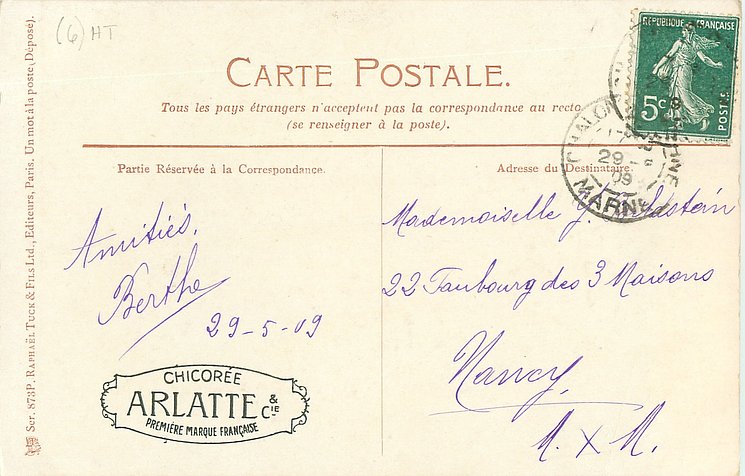 (6) HT
CARTE POSTALE.
Tous les pays étrangers n'acceptent pas la correspondance au recto
(se renseigner à la poste).
RÉPUBLIQUE FRANÇAISE
5c
POSTES
29
09
MARNE
Partie Réservée à la Correspondance.
Amitiés,
Berthe
29-5-09
CHICORÉE
ARLATTE & Cie
PREMIÈRE MARQUE FRANÇAISE
Adresse du Destinataire.
Mademoiselle J.
22 Faubourg des 3 Maisons
Nancy
M. x M.
Ser. 873P. RAPHAËL TUCK & FILS Ltd., Editeurs, Paris. Un mot à la poste (Déposé).